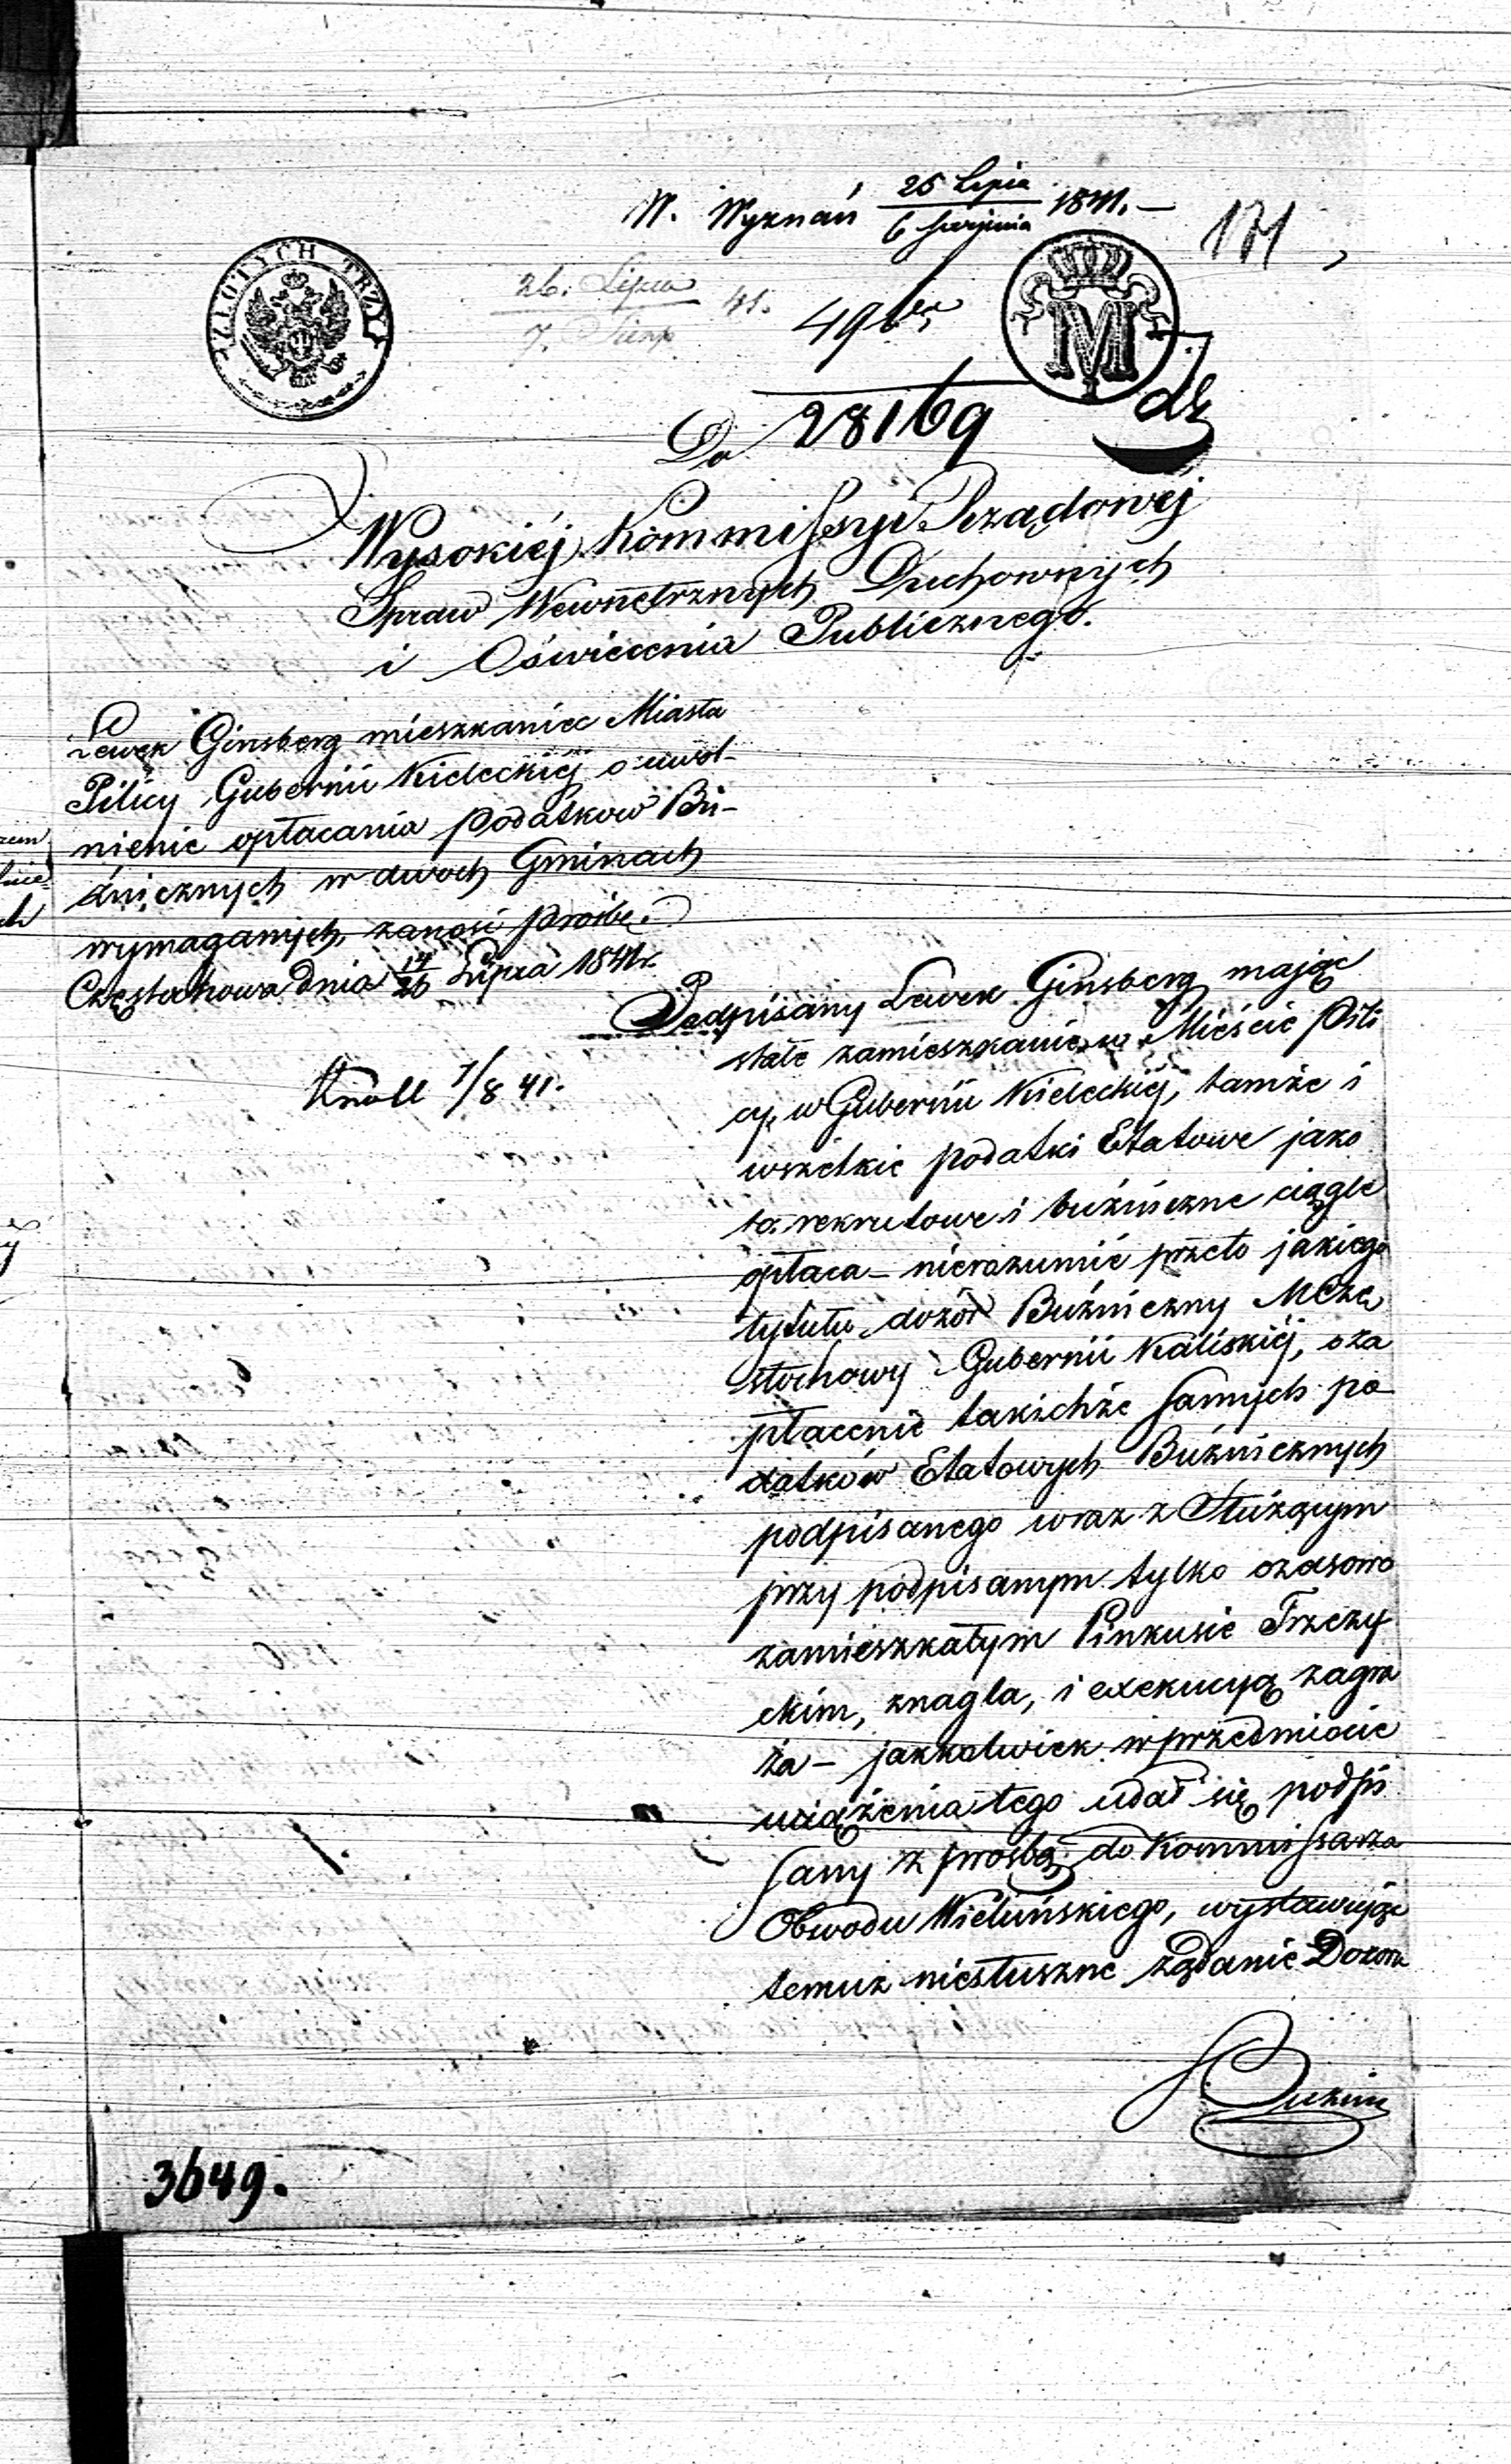 W. Wyznań 25 Lipca / 6 Sierpnia 1841. —
171
ZŁOTYCH TRZY
26. Lipca / 7. Sierp 41.
M
28169
Do
Wysokiéj Kommissyi Rządowéj
Spraw Wewnętrznych Duchownych
i Oświecenia Publicznego.
Lewek Ginsberg mieszkaniec Miasta
Pilicy Gubernii Kieleckiéj o uwol-
nienie opłacania podatkow Bu-
źnicznych w dwoch Gminach
wymaganych, zanosi prośbę.
Częstochowa dnia 14/26 Lipca 1841 r.
Knoll 7/8 41.
Podpisany Lewek Ginsberg mając
stałe zamieszkanie w Mieście Pili
cy, w Gubernii Kieleckiéj, tamże i
wszelkie podatki Etatowe jako
to: rekrutowe i buźniczne ciągle
opłaca — nierozumié przeto jakiego
tytułu dozór Buźniczny M Czę
stochowy Gubernii Kaliskiéj, o za
płacenie takichże samych po
datków Etatowych Buźnicznych
podpisanego wraz z Służącym
przy podpisanym tylko czasowo
zamieszkałym Pinkusie Trzczy
ckim, znagla, i exekucyą zagra
ża — jakkolwiek w przedmiocie
uciążenia tego udał się podpi
sany z prośbą do Kommissarza
Obwodu Wieluńskiego, wystawując
temuz niesłuszne żądanie Dozoru
3649.